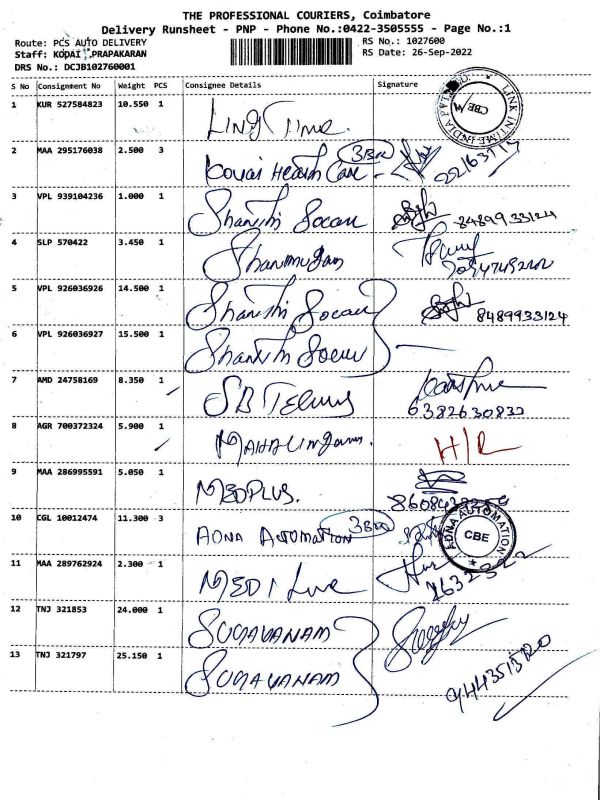 THE PROFESSIONAL COURIERS, Coimbatore
Delivery Runsheet - PNP - Phone No.:0422-3505555 - Page No.:1
Route: PCS AUTO DELIVERY
RS No.: 1027600
Staff: KOVAI PRAPAKARAN
RS Date: 26-Sep-2022
DRS No.: DCJB102760001
S No Consignment No Weight PCS Consignee Details Signature
1 KUR 527584823 10.550 1 Ling Time. LINK INTIME INDIA PVT LTD. CBE
2 MAA 295176038 2.500 3 Kovai Health Care - 3Box
3 VPL 939104236 1.000 1 Shanthi Socau 8489933124
4 SLP 570422 3.450 1 Shanmugam
5 VPL 926036926 14.500 1 Shanthi Socau 8489933124
6 VPL 926036927 15.500 1 Shanthi Socau
7 AMD 24758169 8.350 1 SB 6382630832
8 AGR 700372324 5.900 1 MAHALINGAM. H/R
9 MAA 286995591 5.050 1 MEDPLUS.
10 CGL 10012474 11.300 3 ADNA AUTOMATION 3Box ADNA AUTOMATION CBE
11 MAA 289762924 2.300 1 MEDI Live
12 TNJ 321853 24.000 1 SUGAVANAM
13 TNJ 321797 25.150 1 SUGAVANAM